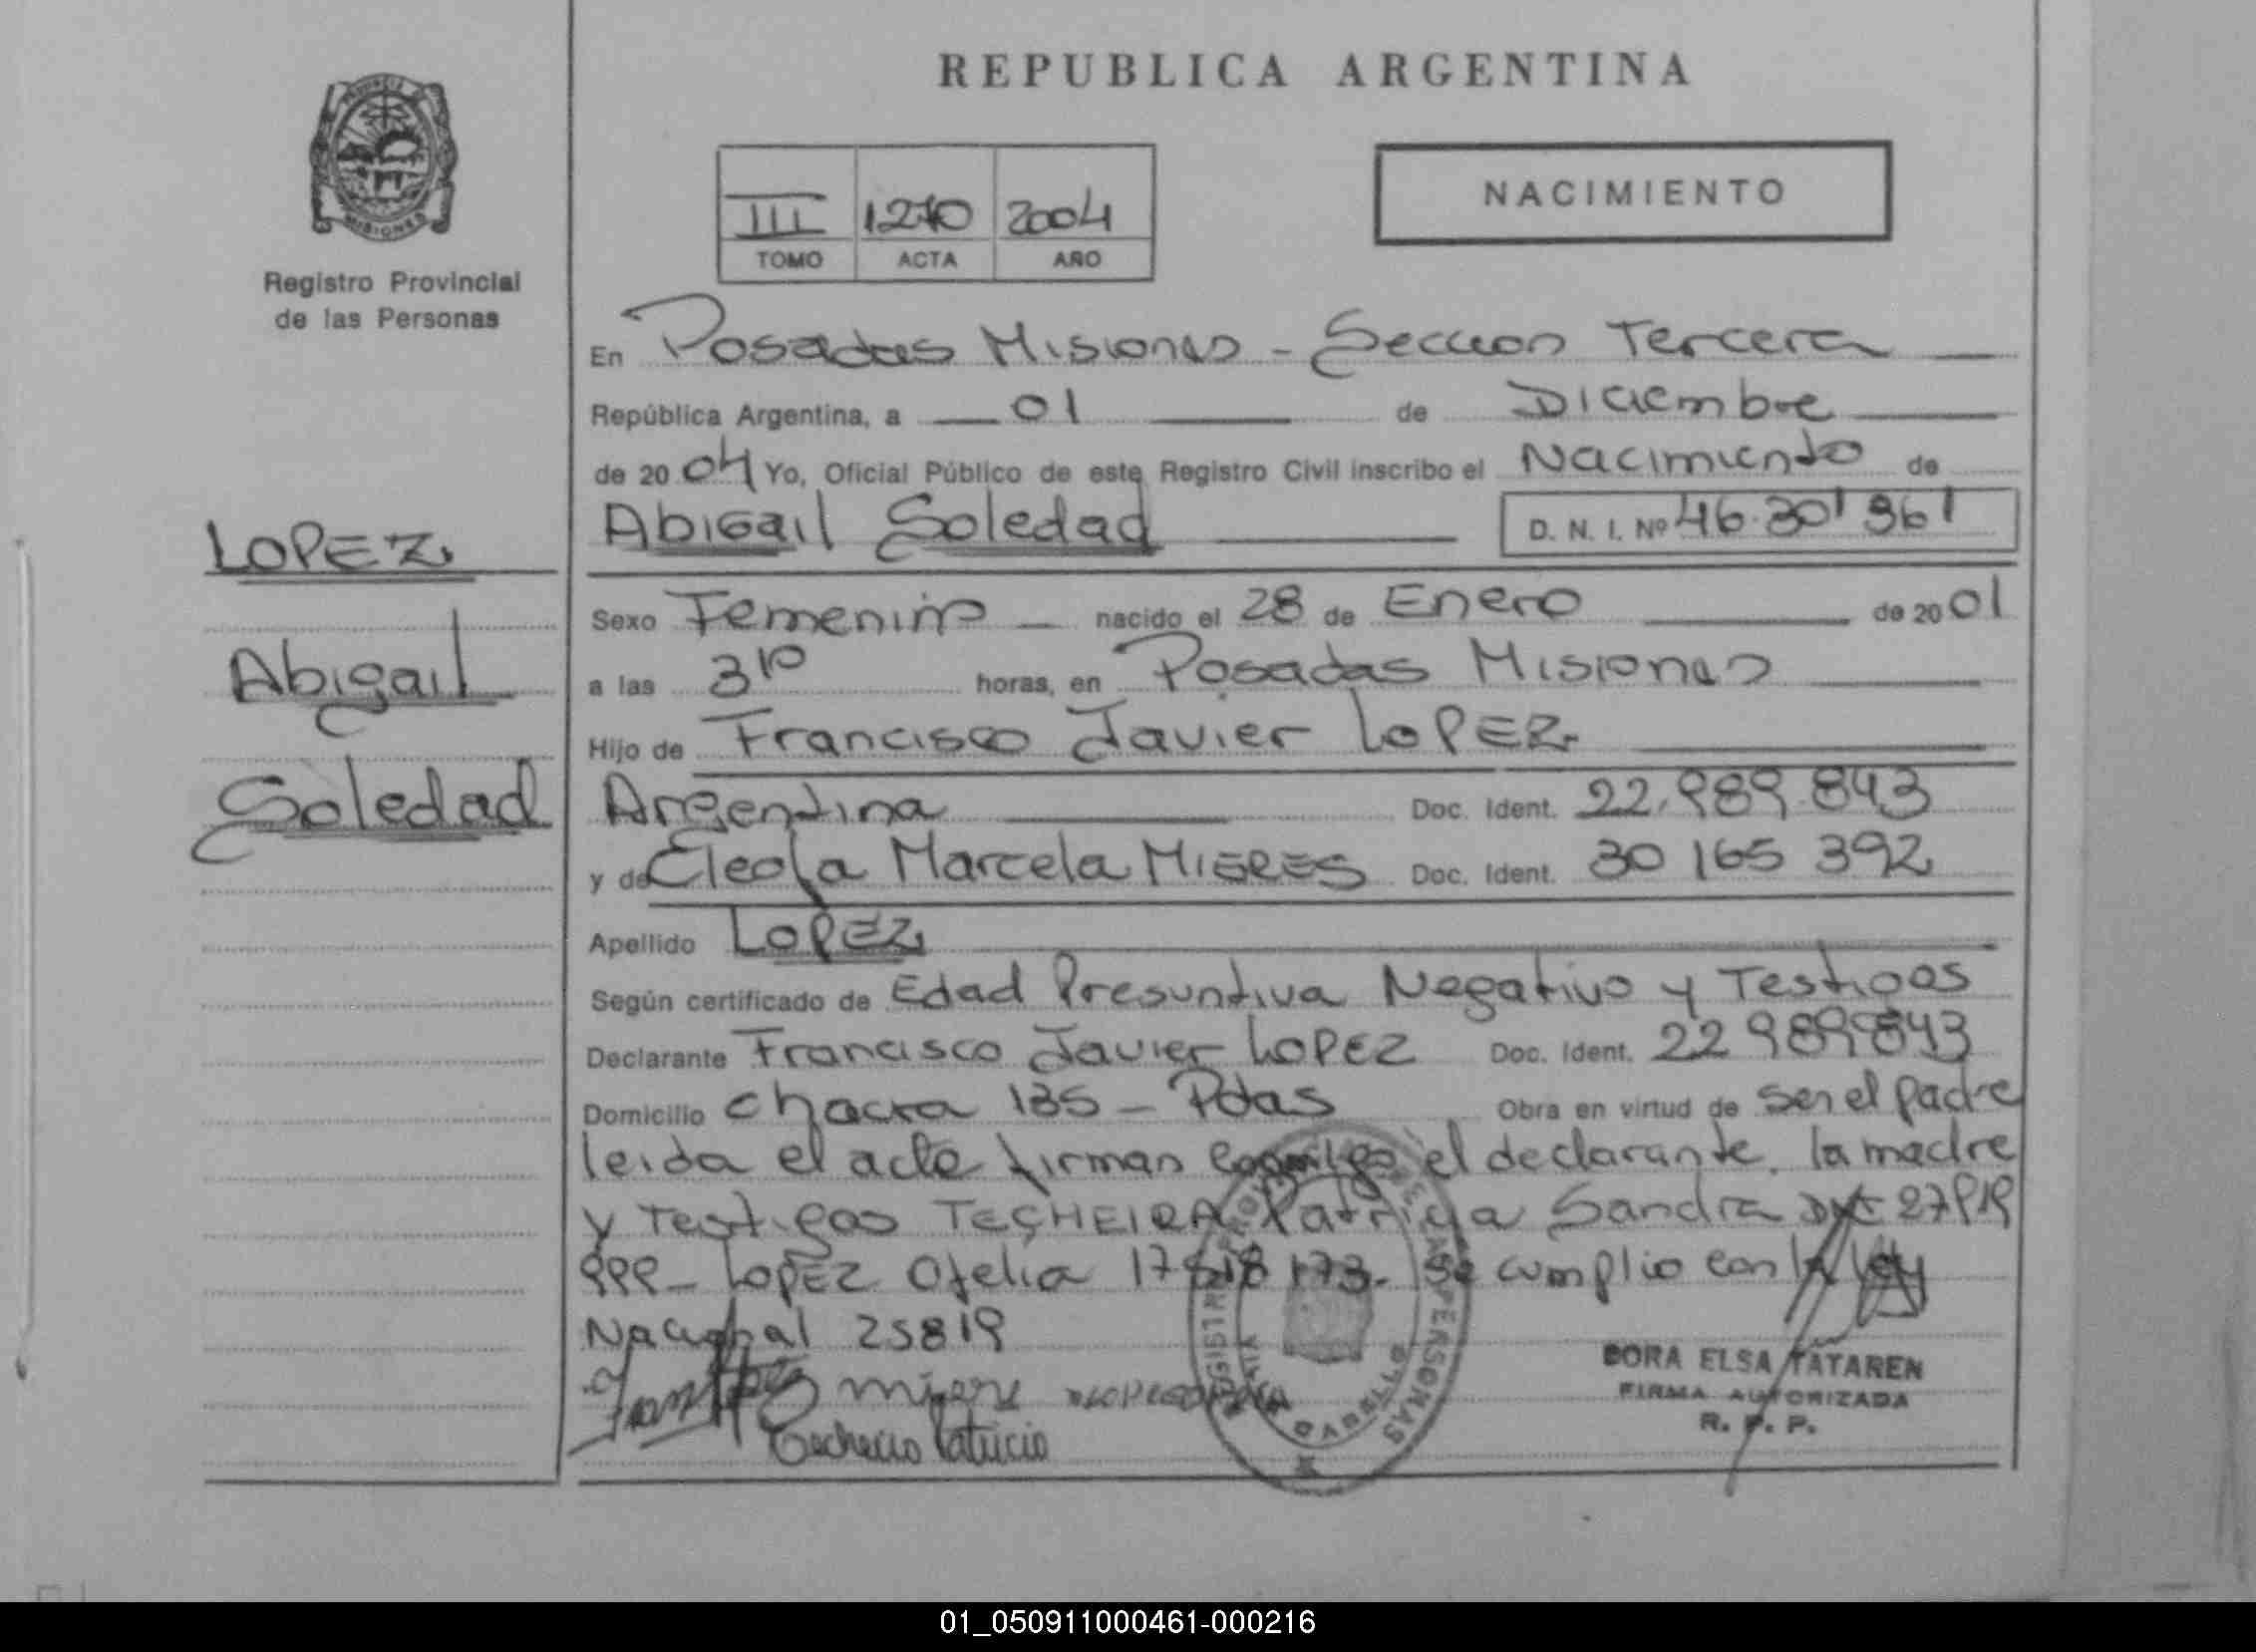 REPUBLICA ARGENTINA
MISIONES
Registro Provincial
de las Personas
III 1270 2004
TOMO ACTA AÑO
NACIMIENTO
En Posadas Misiones - Seccion Tercera
República Argentina, a 01 de Diciembre
de 20 04 Yo, Oficial Público de este Registro Civil inscribo el Nacimiento de
Abigail Soledad D. N. I. Nº 46.301 361
LOPEZ
Abigail
Soledad
Sexo Femenino nacido el 28 de Enero de 20 01
a las 3 10 horas, en Posadas Misiones
Hijo de Francisco Javier LOPEZ
Argentina Doc. Ident. 22.989.843
y de Marcela MIERES Doc. Ident. 30 165 392
Apellido LOPEZ
Según certificado de Edad Presuntiva Negativo y Testigos
Declarante Francisco Javier LOPEZ Doc. Ident. 22 989 843
Domicilio chacra 135 - Pdas Obra en virtud de ser el padre
leida el acta firman conmigo el declarante, la madre
y Testigos TECHEIRA Patricia Sandra 27919
999 - LOPEZ Ofelia 17 173. Se cumplio con la Ley
Nacional 25819
DORA ELSA TATAREN
FIRMA AUTORIZADA
R. P. P.
01_050911000461-000216